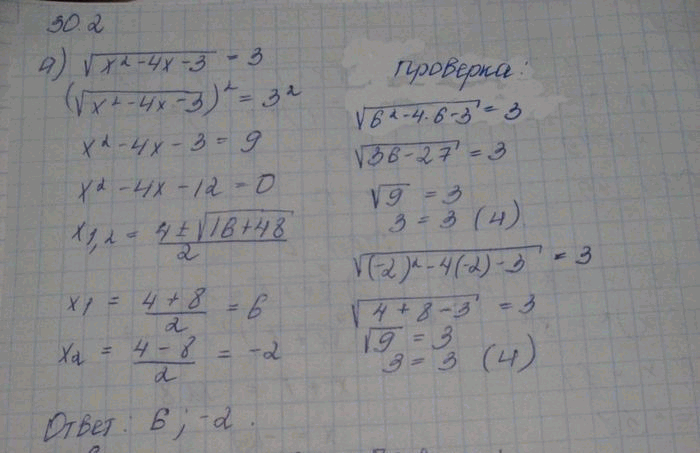 30.2
а) √(x² - 4x - 3) = 3
(√(x² - 4x - 3))² = 3²
x² - 4x - 3 = 9
x² - 4x - 12 = 0
x₁,₂ = (4 ± √(16 + 48)) / 2
x₁ = (4 + 8) / 2 = 6
x₂ = (4 - 8) / 2 = -2
Ответ: 6 ; -2 .
Проверка:
√(6² - 4·6 - 3) = 3
√(36 - 27) = 3
√9 = 3
3 = 3 (И)
√((-2)² - 4(-2) - 3) = 3
√(4 + 8 - 3) = 3
√9 = 3
3 = 3 (И)